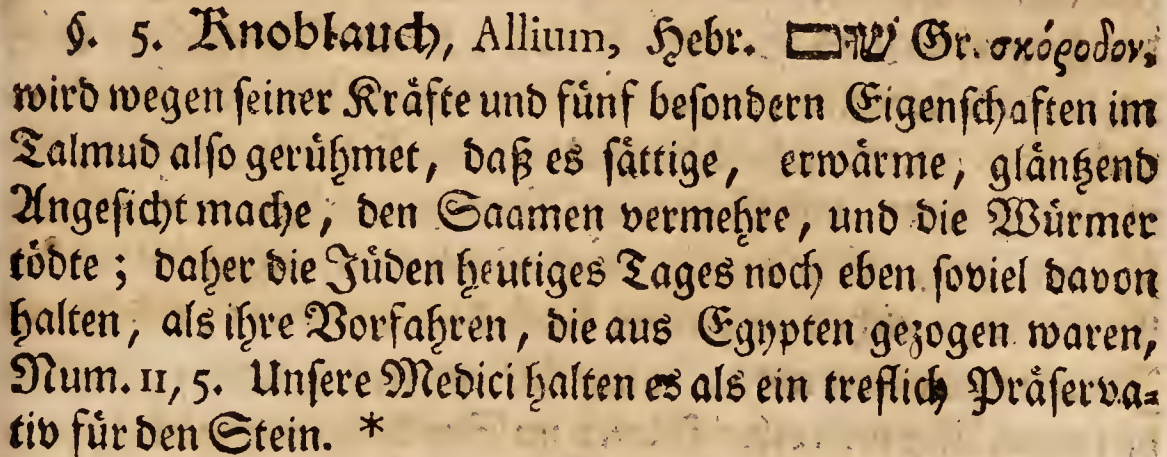 §. 5. Knoblauch, Allium, Hebr. שום Gr. σκόροδον,
wird wegen seiner Kräfte und fünf besondern Eigenschaften im
Talmud also gerühmet, daß es sättige, erwärme, gläntzend
Angesicht mache, den Saamen vermehre, und die Würmer
tödte; daher die Jüden heutiges Tages noch eben soviel davon
halten, als ihre Vorfahren, die aus Egypten gezogen waren,
Num. 11, 5. Unsere Medici halten es als ein treflich Präserva-
tiv für den Stein. *